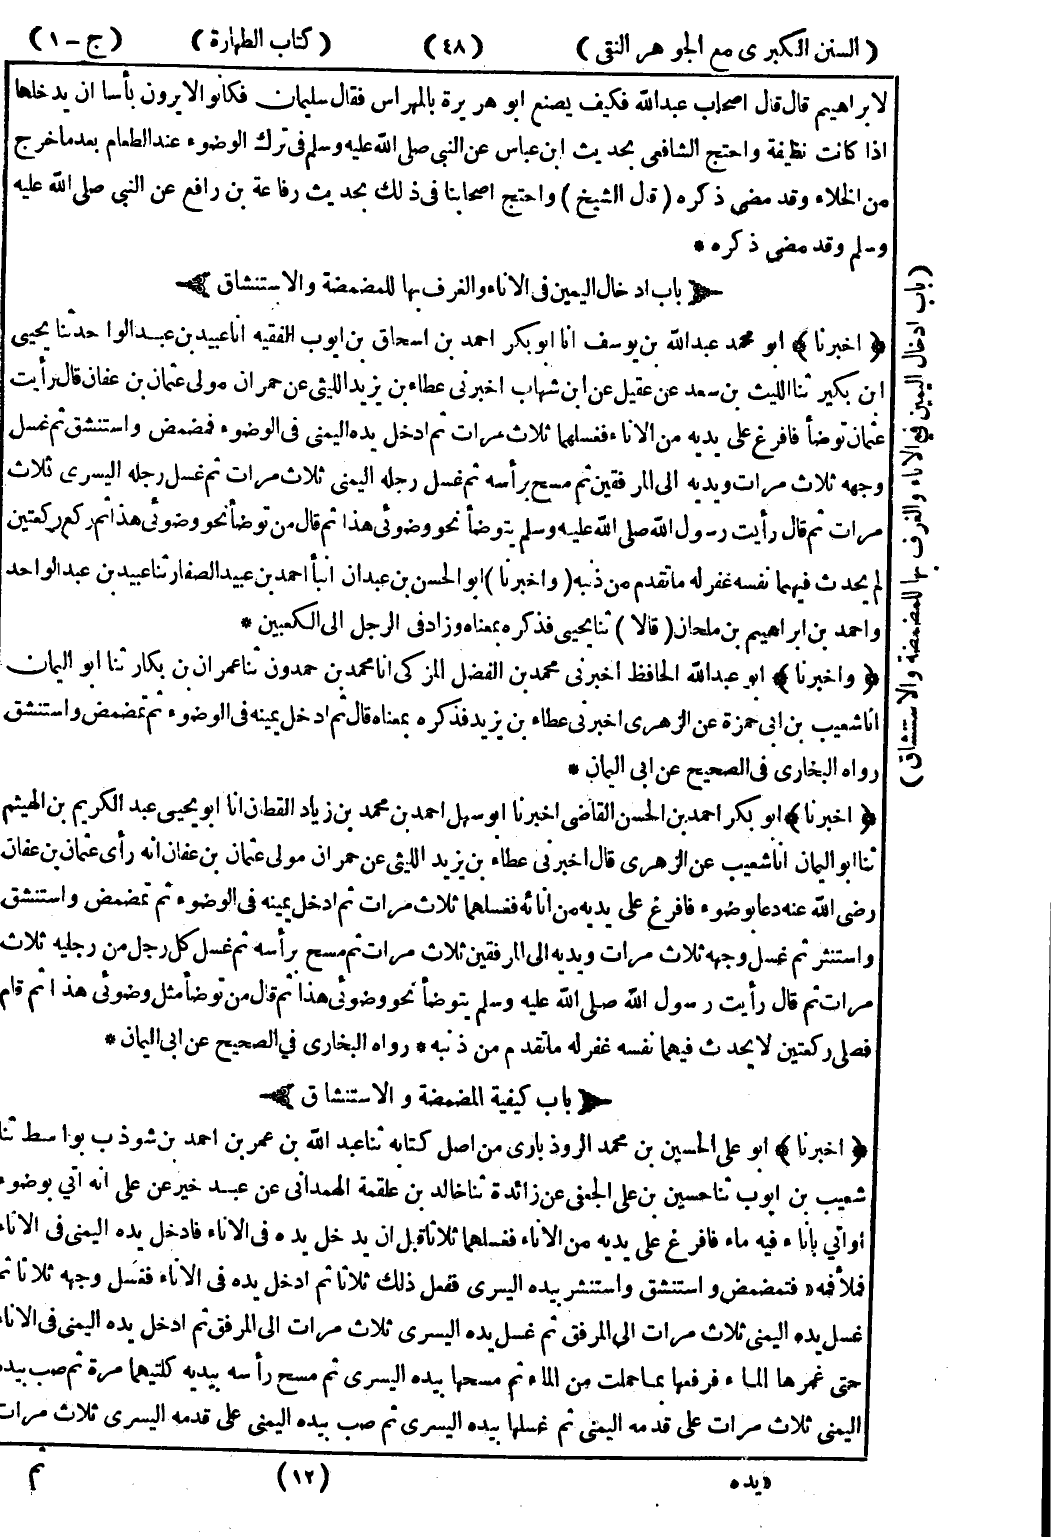 ( السنن الكبرى مع الجوهر النقى ) (٤٨) ( كتاب الطهارة ) ( ج - ١ )
لابراهيم قال قال اصحاب عبدالله فكيف يصنع ابو هريرة بالمهراس فقال سليمان فكانوا لايرون بأسا ان يدخلها
اذا كانت نظيفة واحتج الشافعى بحديث ابن عباس عن النبى صلى الله عليه وسلم فى ترك الوضوء عند الطعام بعد ما خرج
من الخلاء وقد مضى ذكره ( قال الشيخ ) واحتج اصحابنا فى ذلك بحديث رفاعة بن رافع عن النبى صلى الله عليه
وسلم وقد مضى ذكره *
باب ادخال اليمين فى الاناء والغرف بها للمضمضة والاستنشاق
﴿ اخبرنا ﴾ ابو محمد عبدالله بن يوسف انا ابو بكر احمد بن اسحاق بن ايوب الفقيه انا عبيد بن عبد الواحد ثنا يحيى
ابن بكير ثنا الليث بن سعد عن عقيل عن ابن شهاب اخبرنى عطاء بن يزيد الليثى عن حمران مولى عثمان بن عفان قال رأيت
عثمان توضأ فافرغ على يديه من الاناء فغسلهما ثلاث مرات ثم ادخل يده اليمنى فى الوضوء فمضمض واستنشق ثم غسل
وجهه ثلاث مرات ويديه الى المرفقين ثم مسح برأسه ثم غسل رجله اليمنى ثلاث مرات ثم غسل رجله اليسرى ثلاث
مرات ثم قال رأيت رسول الله صلى الله عليه وسلم يتوضأ نحو وضوئى هذا ثم قال من توضأ نحو وضوئى هذا ثم ركع ركعتين
لم يحدث فيهما نفسه غفر له ما تقدم من ذنبه ( واخبرنا ) ابو الحسن بن عبدان انبأ احمد بن عبيد الصفار ثنا عبيد بن عبد الواحد
واحمد بن ابراهيم بن ملحان ( قالا ) ثنا يحيى فذكره بمعناه وزاد فى الرجل الى الكعبين *
﴿ واخبرنا ﴾ ابو عبدالله الحافظ اخبرنى محمد بن الفضل المزكى انا محمد بن حمدون ثنا عمران بن بكار ثنا ابو اليمان
انا شعيب بن ابى حمزة عن الزهرى اخبرنى عطاء بن يزيد فذكره بمعناه قال ثم ادخل يمينه فى الوضوء ثم تمضمض واستنشق
رواه البخارى فى الصحيح عن ابى اليمان *
﴿ اخبرنا ﴾ ابو بكر احمد بن الحسن القاضى اخبرنا ابو سهل احمد بن محمد بن زياد القطان انا ابو يحيى عبد الكريم بن الهيثم
ثنا ابو اليمان انا شعيب عن الزهرى قال اخبرنى عطاء بن يزيد الليثى عن حمران مولى عثمان بن عفان انه رأى عثمان بن عفان
رضى الله عنه دعا بوضوء فافرغ على يديه من انائه فغسلهما ثلاث مرات ثم ادخل يمينه فى الوضوء ثم تمضمض واستنشق
واستنثر ثم غسل وجهه ثلاث مرات ويديه الى المرفقين ثلاث مرات ثم مسح برأسه ثم غسل كل رجل من رجليه ثلاث
مرات ثم قال رأيت رسول الله صلى الله عليه وسلم يتوضأ نحو وضوئى هذا ثم قال من توضأ مثل وضوئى هذا ثم قام
فصلى ركعتين لا يحدث فيهما نفسه غفر له ما تقدم من ذنبه * رواه البخارى في الصحيح عن ابى اليمان *
باب كيفية المضمضة و الاستنشاق
﴿ اخبرنا ﴾ ابو على الحسين بن محمد الروذبارى من اصل كتابه ثنا عبد الله بن عمر بن احمد بن شوذب بواسط ثنا
شعيب بن ايوب ثنا حسين بن على الجعفى عن زائدة ثنا خالد بن علقمة الهمدانى عن عبد خير عن على انه اتي بوضوء
او اتي باناء فيه ماء فافرغ على يديه من الاناء فغسلهما ثلاثا قبل ان يدخل يده فى الاناء فادخل يده اليمنى فى الاناء
فملأ فمه فتمضمض و استنشق واستنثر بيده اليسرى ففعل ذلك ثلاثا ثم ادخل يده فى الاناء فغسل وجهه ثلاثا ثم
غسل يده اليمنى ثلاث مرات الى المرفق ثم غسل يده اليسرى ثلاث مرات الى المرفق ثم ادخل يده اليمنى فى الاناء
حتى غمرها الماء فرفعها بما حملت من الماء ثم مسحها بيده اليسرى ثم مسح رأسه بيديه كلتيهما مرة ثم صب بيده
اليمنى ثلاث مرات على قدمه اليمنى ثم غسلها بيده اليسرى ثم صب بيده اليمنى على قدمه اليسرى ثلاث مرات
(١٢) ثم
( باب ادخال اليمين في الاناء والغرف بها للمضمضة والاستنشاق )